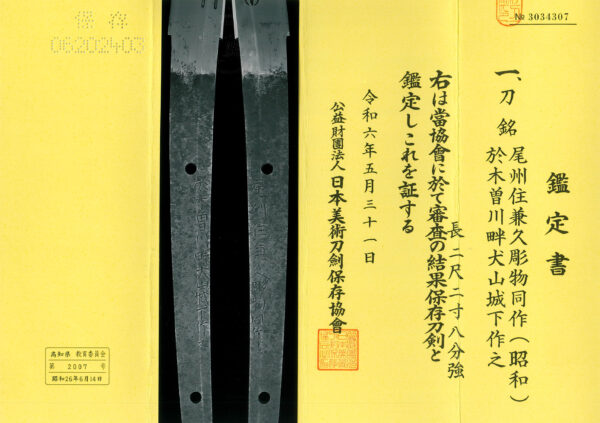 № 3034307
鑑定書
一、刀 銘 尾州住兼久彫物同作(昭和)
於木曽川畔犬山城下作之
長 二尺二寸八分強
右は當協會に於て審査の結果保存刀剣と
鑑定しこれを証する
令和六年五月三十一日
公益財團法人 日本美術刀剣保存協會
保存
06202403
高知県 教育委員会
第 2097 号
昭和26年6月14日